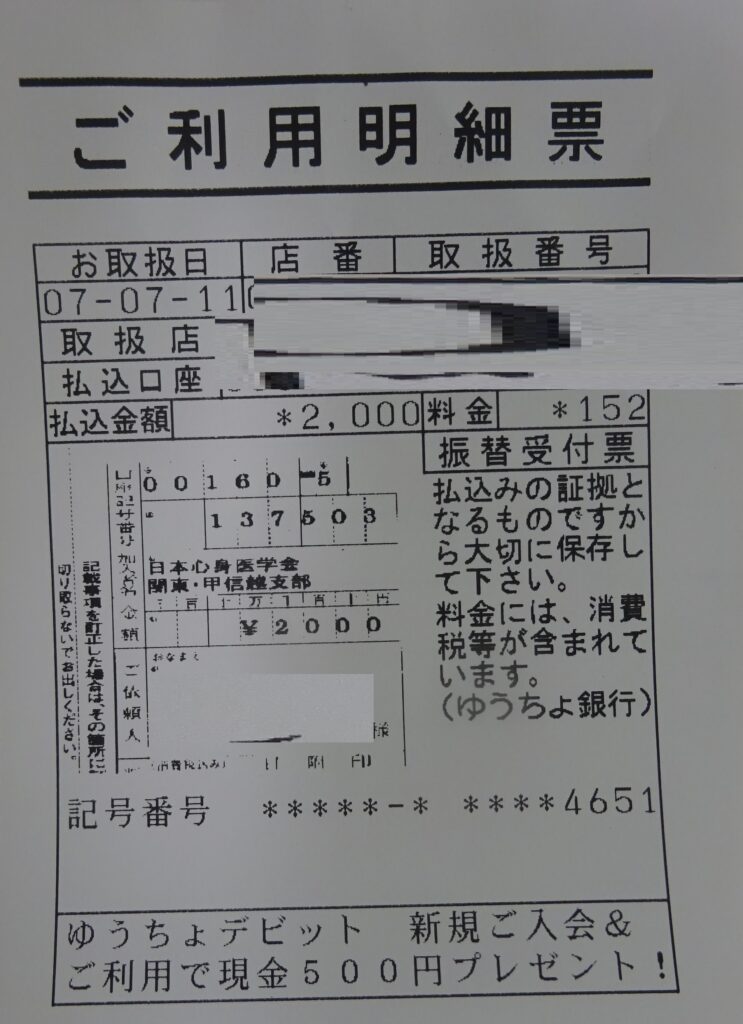 ご利用明細票
お取扱日 店番 取扱番号
07-07-11
取扱店
払込口座
払込金額 *2,000 料金 *152
振替受付票
払込みの証拠と
なるものですか
ら大切に保存し
て下さい。
料金には、消費
税等が含まれて
います。
(ゆうちょ銀行)
口座記号番号 00160-5
137503
加入者名 日本心身医学会
関東・甲信越支部
金額 千百十万千百十円
¥2000
ご依頼人 おなまえ
様
(消費税込み) 日附印
記載事項を訂正した場合は、その箇所に
切り取らないでお出しください。
記号番号 *****-* ****4651
ゆうちょデビット 新規ご入会&
ご利用で現金500円プレゼント!